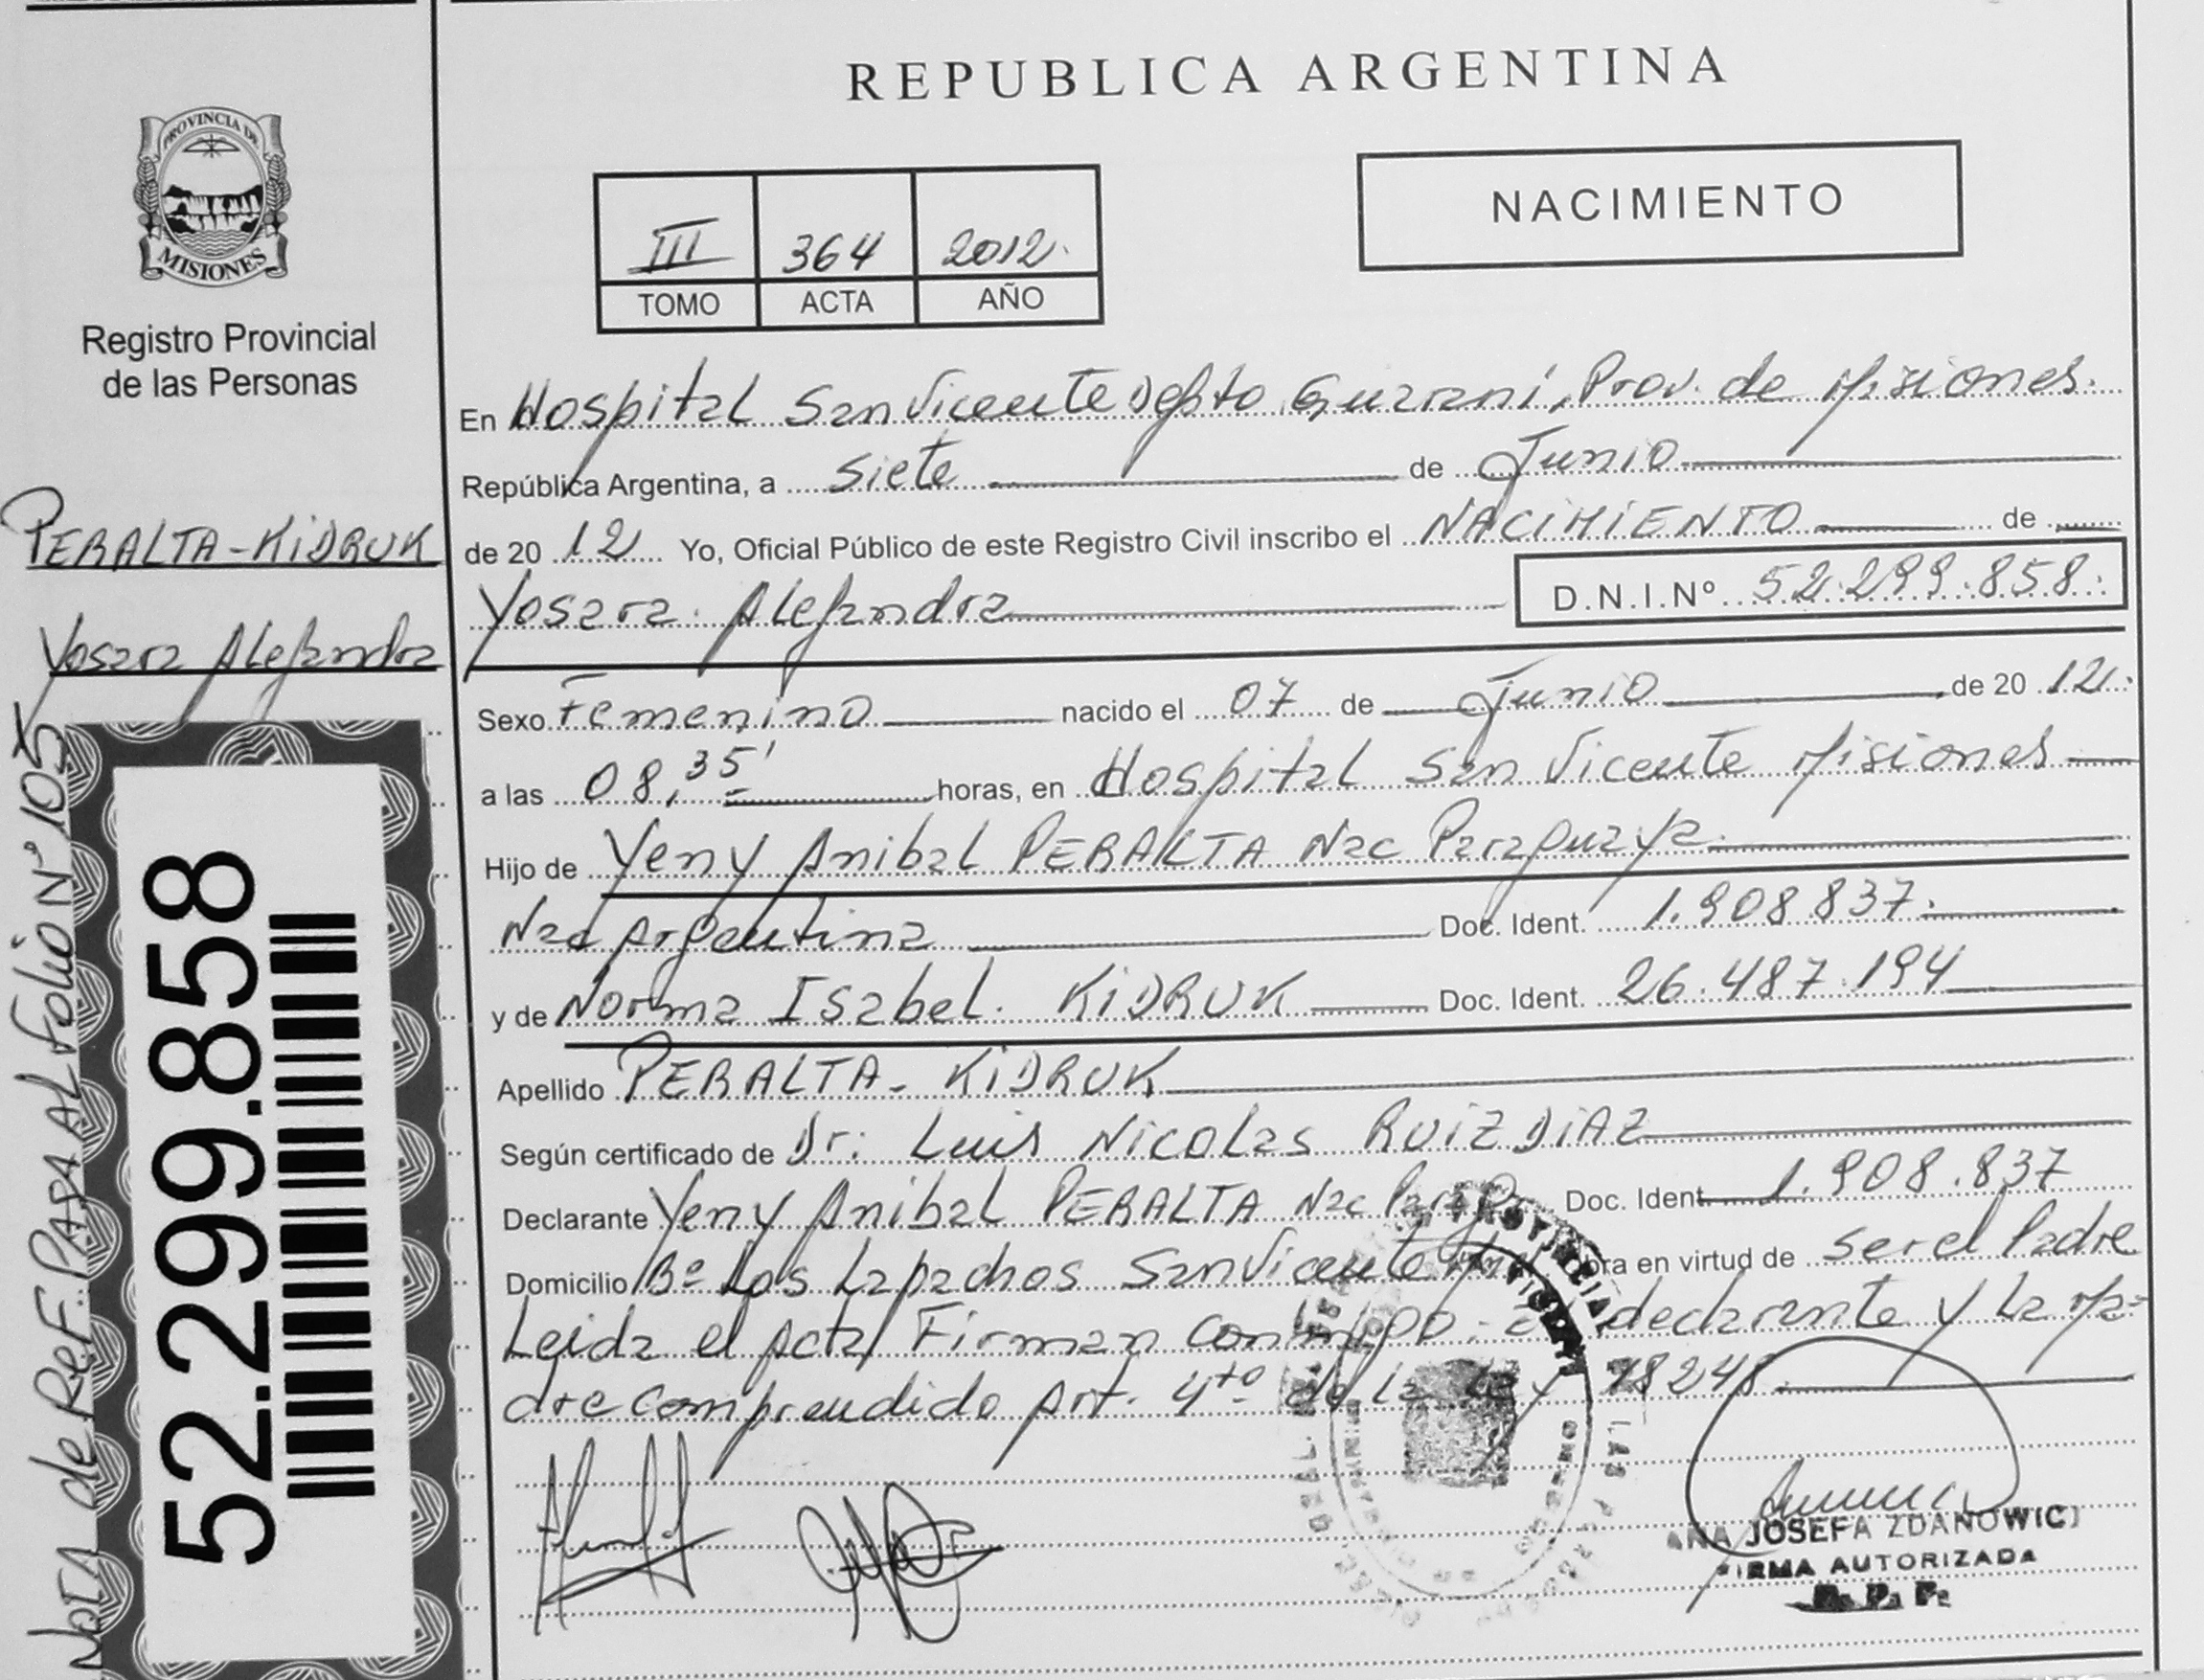 REPUBLICA ARGENTINA
PROVINCIA DE
MISIONES
Registro Provincial
de las Personas
PERALTA-KIDRUK
Yosara Alejandra
NOTA de REF. PAPA AL folio N° 105
52.299.858
III 364 2012.
TOMO ACTA AÑO
NACIMIENTO
En Hospital San Vicente Depto Guarani, Prov. de Misiones.
República Argentina, a siete de Junio
de 2012 Yo, Oficial Público de este Registro Civil inscribo el NACIMIENTO de
Yosara. Alejandra D.N.I.Nº 52.299.858.
Sexo Femenino nacido el 07 de Junio de 2012.
a las 08,35' horas, en Hospital San Vicente Misiones
Hijo de Yeny Anibal PERALTA Nac Paraguaya
Nac Argentina Doc. Ident. 1.908.837.
y de Norma Isabel. KIDRUK Doc. Ident. 26.487.194
Apellido PERALTA- KIDRUK
Según certificado de Dr: Luis Nicolas RUIZ DIAZ
Declarante Yeny Anibal PERALTA Nac Doc. Ident. 1.908.837
Domicilio Bº Los Lapachos San Vicente obra en virtud de ser el Padre
Leida el Acta Firman Conmigo: el declarante y la Ma-
dre comprendido Art. 4to de la Ley 18248
ANA JOSEFA ZDANOWICZ
FIRMA AUTORIZADA